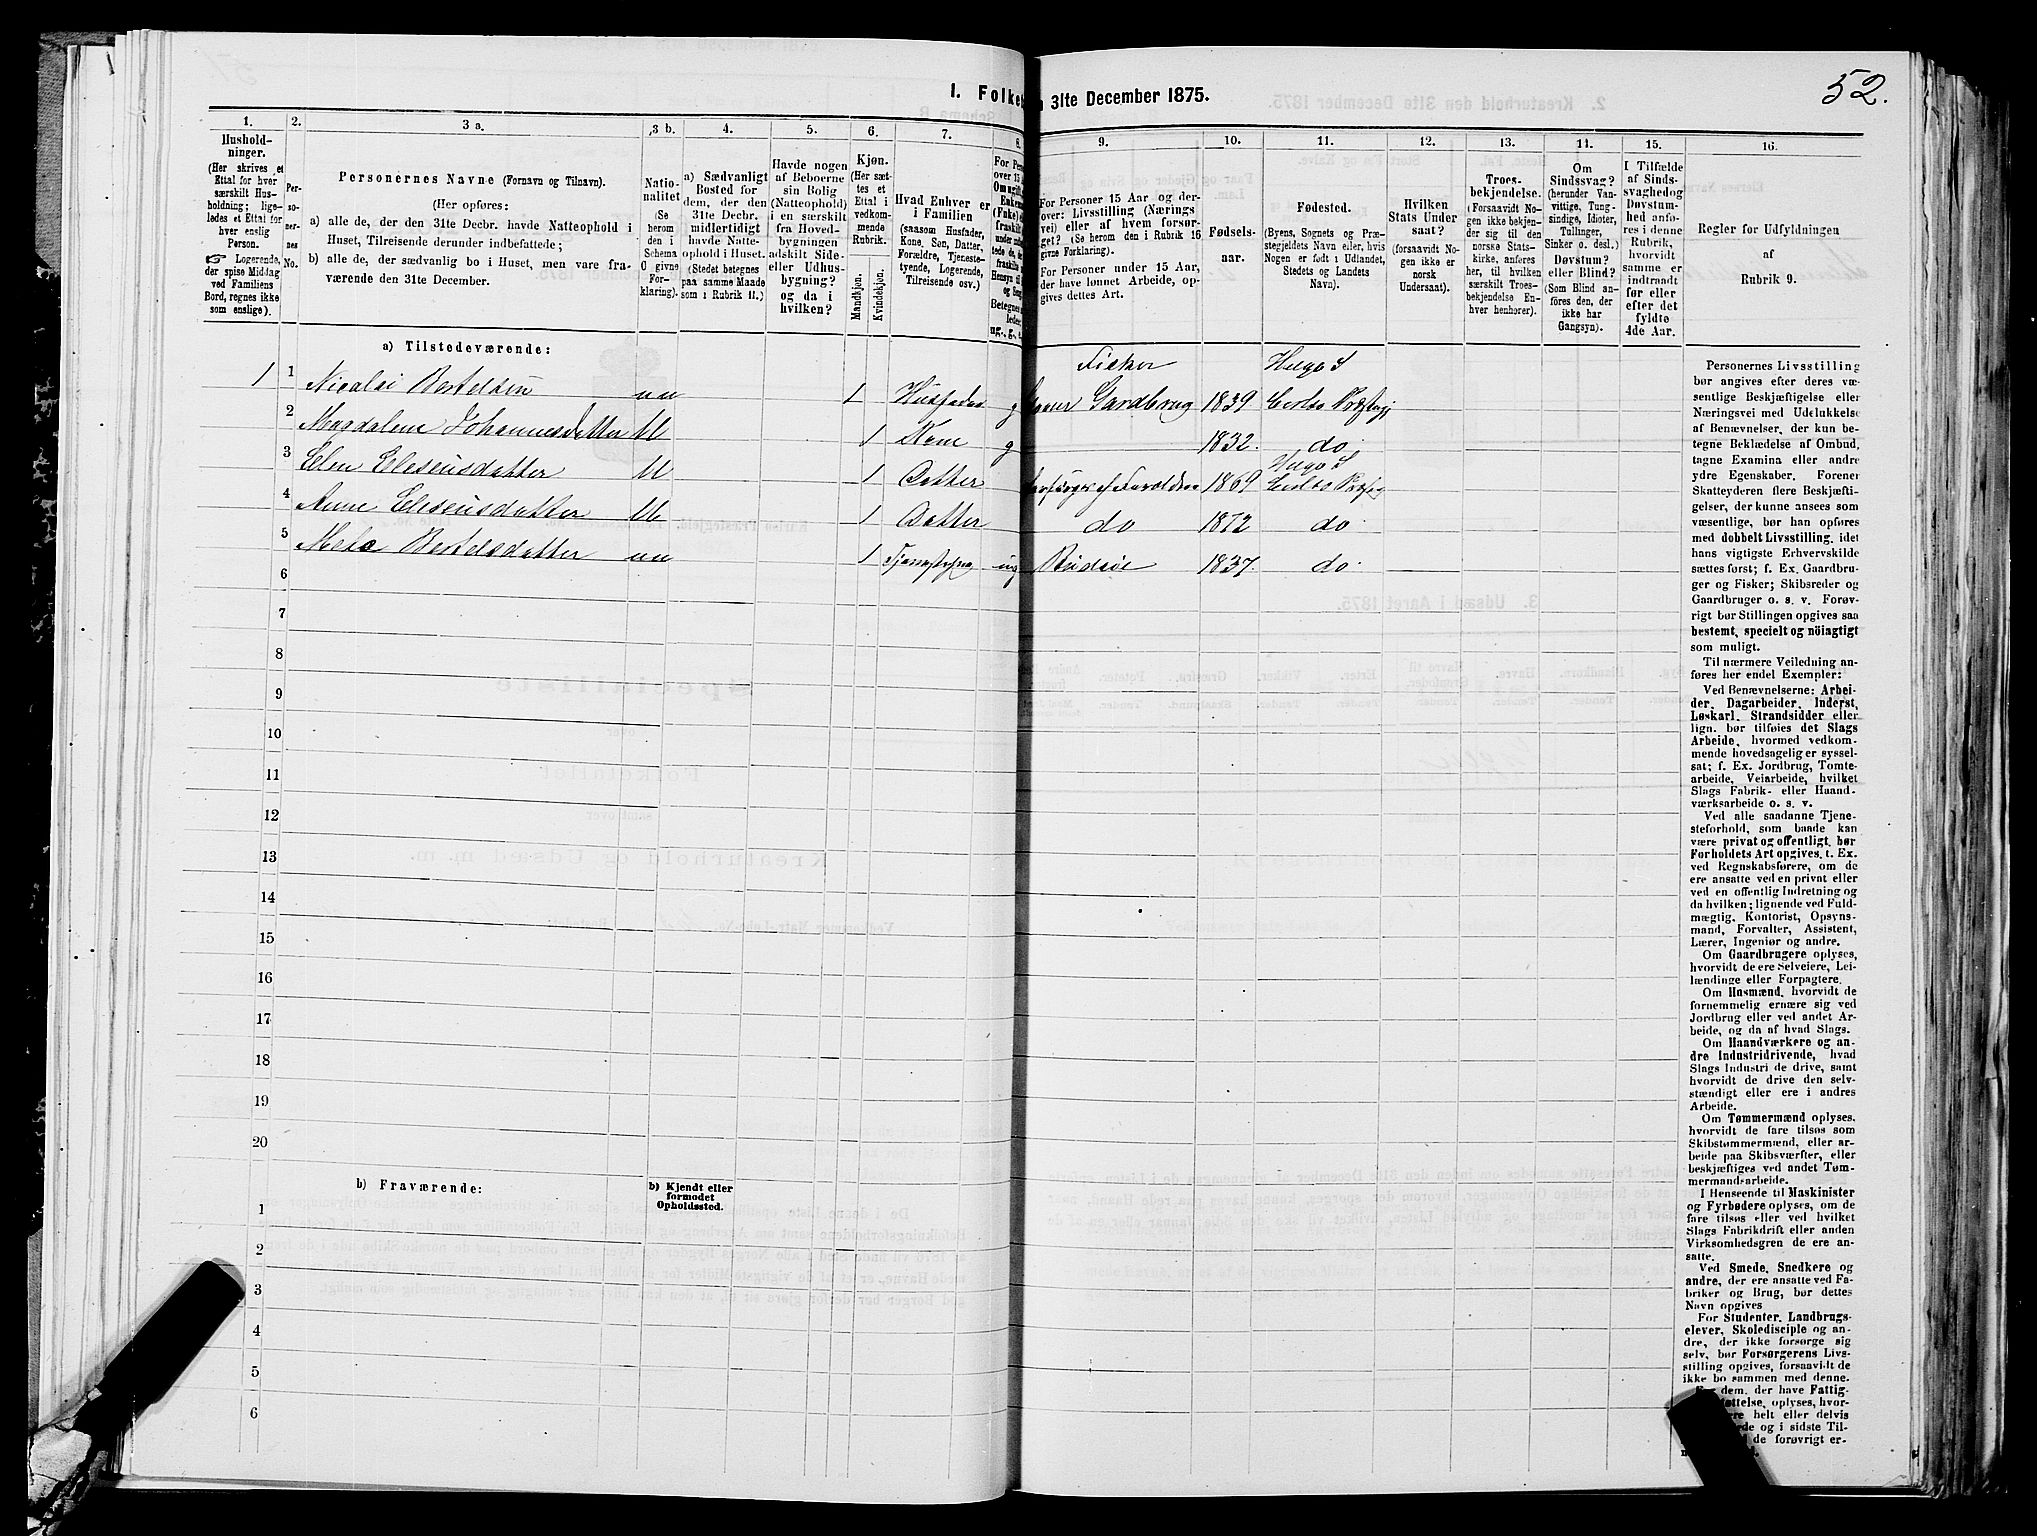 52.
I. Folke
31te December 1875.
1. 2. 3 a. 3 b. 4. 5. 6. 7. 8. 9. 10. 11. 12. 13. 14. 15. 16.
Hushold-
ninger.
(Her skrives et
Ettal for hver
særskilt Hus-
holdning; lige-
ledes et Ettal for
hver enslig
Person.
Logerende,
der spise Middag
ved Familiens
Bord, regnes ikke
som enslige).
Per-
so-
ner-
nes
No.
Personernes Navne (Fornavn og Tilnavn).
(Her opføres:
a) alle de, der den 31te Decbr. havde Natteophold i
Huset, Tilreisende derunder indbefattede;
b) alle de, der sædvanlig bo i Huset, men vare fra-
værende den 31te December.
Natio-
nalitet
(Se
herom
den i
Schema
O givne
For-
klaring).
a) Sædvanligt
Bosted for
dem, der den
31te Decbr.
midlertidigt
havde Natte-
ophold i Huset.
(Stedet betegnes
paa samme Maade
som i Rubrik 11.)
Havde nogen
af Beboerne
sin Bolig
(Natteophold)
i en særskilt
fra Hoved-
bygningen
adskilt Side-
eller Udhus-
bygning?
og da i
hvilken?
Kjøn.
(Her sæt-
tes et
Ettal i
vedkom-
mende
Rubrik.
Mandkjøn.
Kvindekjøn.
Hvad Enhver er
i Familien
(saasom Husfader,
Kone, Søn, Datter,
Forældre, Tjeneste-
tyende, Logerende,
Tilreisende osv.)
For Personer 15 Aar og der-
over: Livsstilling (Nærings
vei) eller af hvem forsør-
get? (Se herom den i Rubrik 16
givne Forklaring).
For Personer under 15 Aar,
der have lønnet Arbeide, op-
gives dettes Art.
Fødsels-
aar.
Fødested.
(Byens, Sognets og Præ-
stegjeldets Navn eller, hvis
Nogen er født i Udlandet,
Stedets og Landets
Navn).
Hvilken
Stats Under
saat?
(forsaavidt No-
gen ikke er
norsk
Undersaat).
Troes-
bekjendelse.
(Forsaavidt No-
gen ikke bekjen-
der sig til den
norske Stats-
kirke, anføres
her, til hvilken
særskilt Troes-
bekjendelse En-
hver henhører).
Om
Sindssvag?
(herunder Van-
vittige, Tung-
sindige, Idioter,
Tullinger,
Sinker o. desl.)
Døvstum?
eller Blind?
(Som Blind an-
føres den, der
ikke har
Gangsyn).
I Tilfælde
af Sinds-
svaghed og
Døvstum-
hed anfø-
res i denne
Rubrik,
hvorvidt
samme er
indtraadt
før eller
efter det
fyldte
4de Aar.
Regler for Udfyldningen
af
Rubrik 9.
a) Tilstedeværende:
Fisker Helgø S
1 1 Nicolai Bertelsen nn 1 Husfader g Gardbrug 1839
2 Magdalene Johannesdatter bl 1 Kone g 1832. do
Helgø S
3 Elen Eleseusdatter bl 1 Datter 1869
4 Anne Eleseusdatter bl 1 Datter do 1872 do
5 Bertelsdatter nn 1 ug Budeie 1837. do
6
7
8
9
10
11
12
13
14
15
16
17
18
19
20
b) Fraværende:
b) Kjendt eller
formodet
Opholdssted.
1
2
3
4
5
6
Personernes Livsstilling
bør angives efter deres væ-
sentlige Beskjæftigelse eller
Næringsvei med Udelukkelse
af Benævnelser, der kun be-
tegne Beklædelse af Ombud,
tagne Examina eller andre
ydre Egenskaber. Forener
Skatteyderen flere Beskjæfti-
gelser, der kunne ansees som
væsentlige, bør han opføres
med dobbelt Livsstilling, idet
hans vigtigste Erhvervskilde
sættes først; f. Ex. Gaardbru-
ger og Fisker; Skibsreder og
Gaardbruger o. s. v. Forøv-
rigt bør Stillingen opgives saa
bestemt, specielt og nöiagtigt
som muligt.
Til nærmere Veiledning an-
føres her endel Exempler:
Ved Benævnelserne: Arbei-
der, Dagarbeider, Inderst,
Løskarl, Strandsidder eller
lign. bør tilføies det Slags
Arbeide, hvormed vedkom-
mende hovedsagelig er syssel-
sat; f. Ex. Jordbrug, Tomte-
arbeide, Veiarbeide, hvilket
Slags Fabrik- eller Haand-
værksarbeide o. s. v.
Ved alle saadanne Tjene-
steforhold, som baade kan
være privat og offentligt, bør
Forholdets Art opgives, t. Ex.
ved Regnskabsførere, om de
ere ansatte ved en privat eller
ved en offentlig Indretning og
da hvilken; lignende ved Fuld-
mægtig, Kontorist, Opsyns-
mand, Forvalter, Assistent,
Lærer, Ingeniør og andre.
Om Gaardbrugere oplyses,
hvorvidt de ere Selveiere, Lei-
lændinge eller Forpagtere.
Om Husmænd, hvorvidt de
fornemmelig ernære sig ved
Jordbrug eller ved andet Ar-
beide, og da af hvad Slags.
Om Haandværkere og an-
dre Industridrivende, hvad
Slags Industri de drive, samt
hvorvidt de drive den selv-
stændigt eller ere i andres
Arbeide.
Om Tømmermænd oplyses,
hvorvidt de fare tilsøs som
Skibstømmermænd, eller ar-
beide paa Skibsværfter, eller
beskjæftiges ved andet Tøm-
mermandsarbeide.
I Henseende til Maskinister
og Fyrbødere oplyses, om de
fare tilsøs eller ved hvilket
Slags Fabrikdrift eller anden
Virksomhedsgren de ere an-
satte.
Ved Smede, Snedkere og
andre, der ere ansatte ved Fa-
briker og Brug, bør dettes
Navn opgives
For Studenter, Landbrugs-
elever, Skoledisciple og an-
dre, der ikke forsørge sig
selv, bør Forsørgerens Livs-
stilling opgives, forsaavidt de
ikke bo sammen med denne.
dem, der have Fattig-
oplyses, hvor-
helt eller delvis
og i sidste Til-
de forøvrigt er-